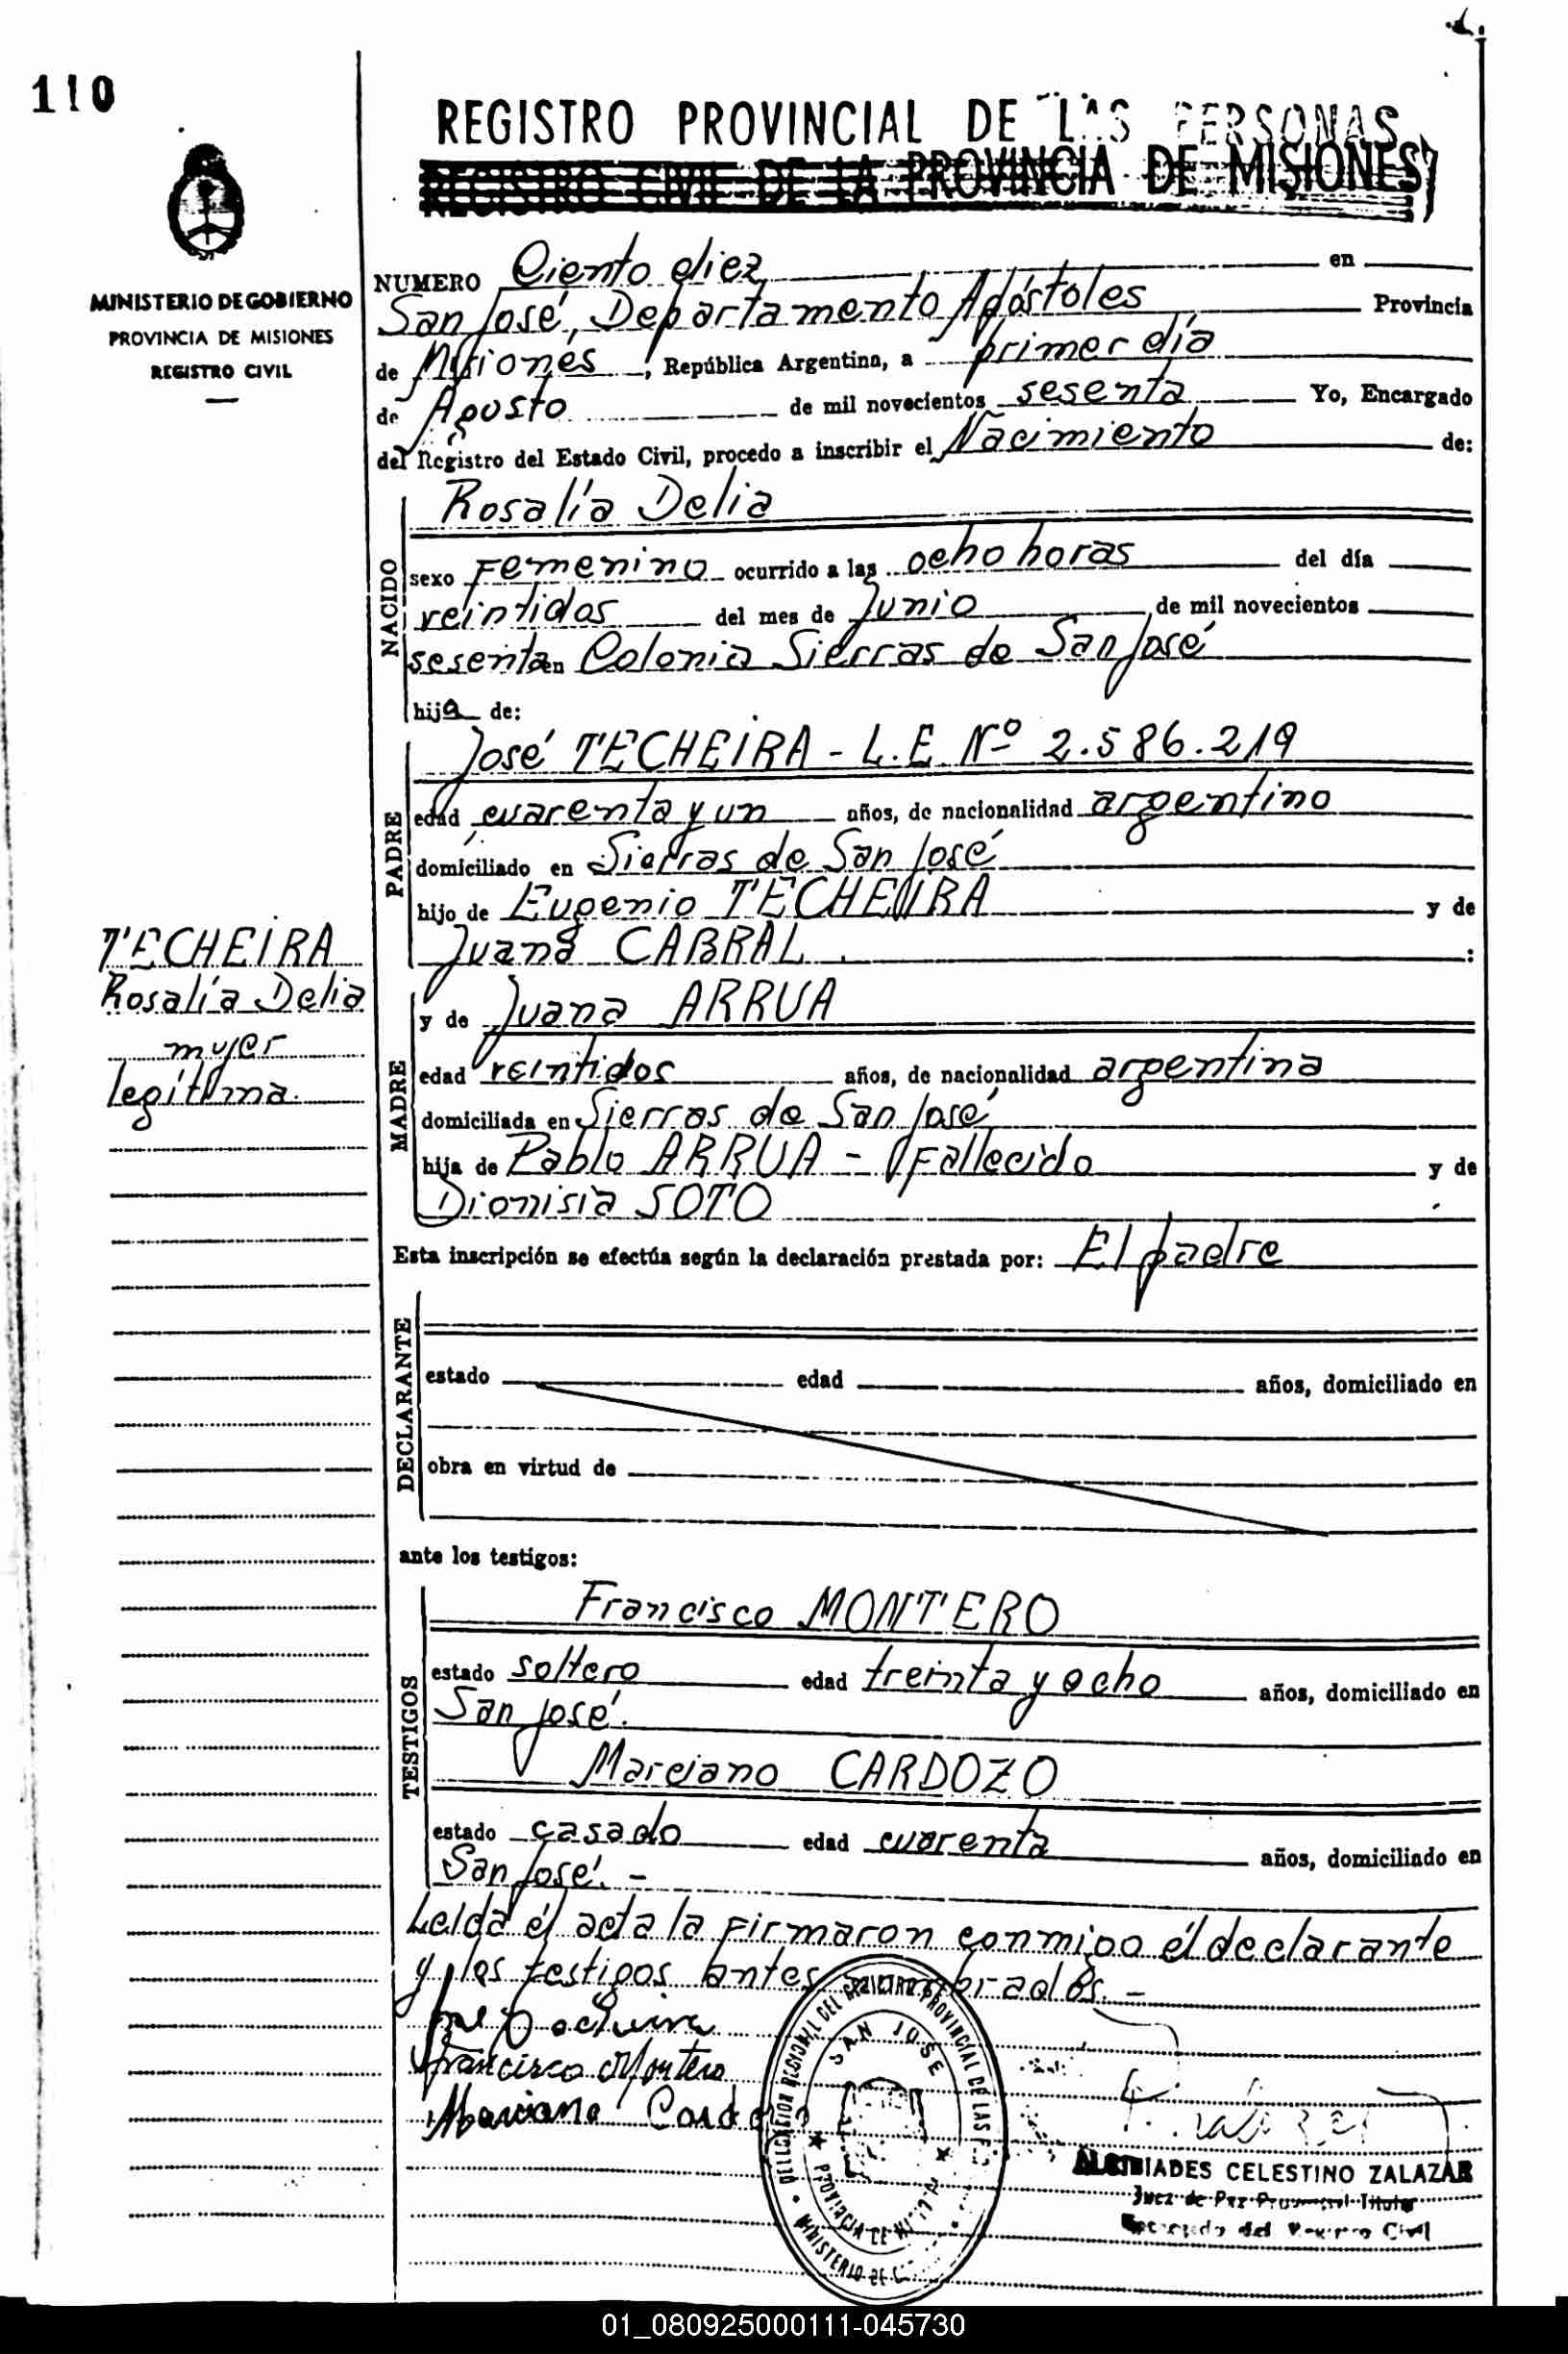 110
REGISTRO PROVINCIAL DE LAS PERSONAS
REGISTRO CIVIL DE LA PROVINCIA DE MISIONES
MINISTERIO DE GOBIERNO
PROVINCIA DE MISIONES
REGISTRO CIVIL
NUMERO Ciento diez en
San José, Departamento Apóstoles Provincia
de Misiones, República Argentina, a primer día
de Agosto de mil novecientos sesenta Yo, Encargado
del Registro del Estado Civil, procedo a inscribir el Nacimiento de:
NACIDO
Rosalía Delia
sexo Femenino ocurrido a las ocho horas del día
veintidos del mes de Junio de mil novecientos
sesenta en Colonia Sierras de San José
hija de:
PADRE
José TECHEIRA - L.E. Nº 2.586.219
edad cuarenta y un años, de nacionalidad argentino
domiciliado en Sierras de San José
hijo de Eugenio TECHEIRA y de
Juana CABRAL
TECHEIRA
Rosalía Delia
mujer
legítima.
MADRE
y de Juana ARRUA
edad veintidos años, de nacionalidad argentina
domiciliada en Sierras de San José
hija de Pablo ARRUA - Fallecido y de
Dionisia SOTO
Esta inscripción se efectúa según la declaración prestada por: El padre
DECLARANTE
estado edad años, domiciliado en
obra en virtud de
ante los testigos:
TESTIGOS
Francisco MONTERO
estado soltero edad treinta y ocho años, domiciliado en
San José.
Marciano CARDOZO
estado casado edad cuarenta años, domiciliado en
San José. -
Leída el acta la firmaron conmigo el declarante
y los testigos antes nombrados. -
Francisco Montero
Marciano Cardozo
DELEGACION REGIONAL DEL REGISTRO PROVINCIAL DE LAS
SAN JOSE
PROVINCIA DE
MINISTERIO DE
ALCIBIADES CELESTINO ZALAZAR
Juez de Paz Titular
Encargado del Registro Civil
01_080925000111-045730